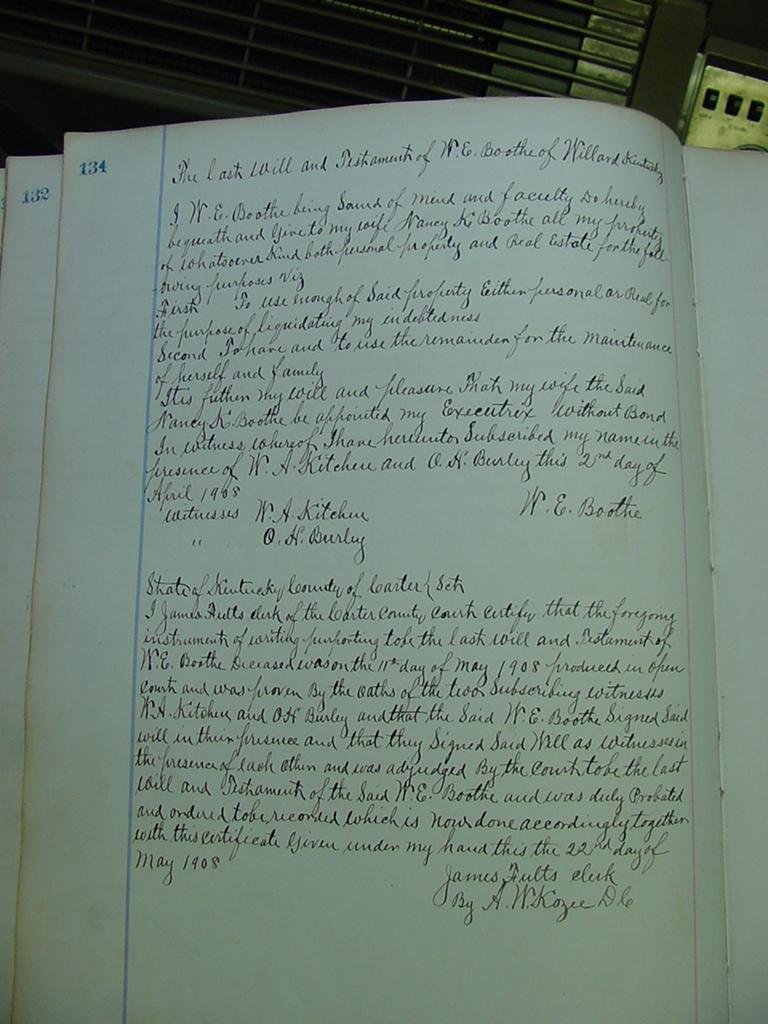 134
132
The last Will and Testament of W.E. Boothe of Willard Kentucky
I W.E. Boothe being Sound of mind and faculty Do hereby
bequeath and Give to my wife Nancy K. Boothe all my property
of whatsoever Kind both personal property and Real Estate for the foll
-owing purposes Viz
First To use enough of Said property Either personal or Real for
the purpose of liquidating my indebtedness
Second To have and to use the remainder for the Maintenance
of herself and family
It is further my will and pleasure That my wife the Said
Nancy K. Boothe be appointed my Executrix Without Bond
In witness whereof I have hereunto Subscribed my name in the
presence of W. A. Kitchen and O. H. Burley this 2nd day of
April 1908
Witnesses W. A. Kitchen W. E. Boothe
" O. H. Burley
State of Kentucky County of Carter { Sct
I James Fults clerk of the Carter County Court Certify that the foregoing
instrument of writing purporting to be the last will and Testament of
W.E. Boothe Deceased was on the 11th day of May 1908 produced in open
Court and was proven By the oaths of the two Subscribing witnesses
W.A. Kitchen and O H Burley and that the Said W.E. Boothe Signed Said
will in their presence and that they Signed Said Will as witnesses in
the presence of each other and was adjudged By the Court to be the last
Will and Testament of the Said W.E. Boothe and was duly Probated
and ordered to be recorded which is Now done accordingly together
with this certificate Given under my hand this the 22nd day of
May 1908
James Fults clerk
By A. W. Kozee D C